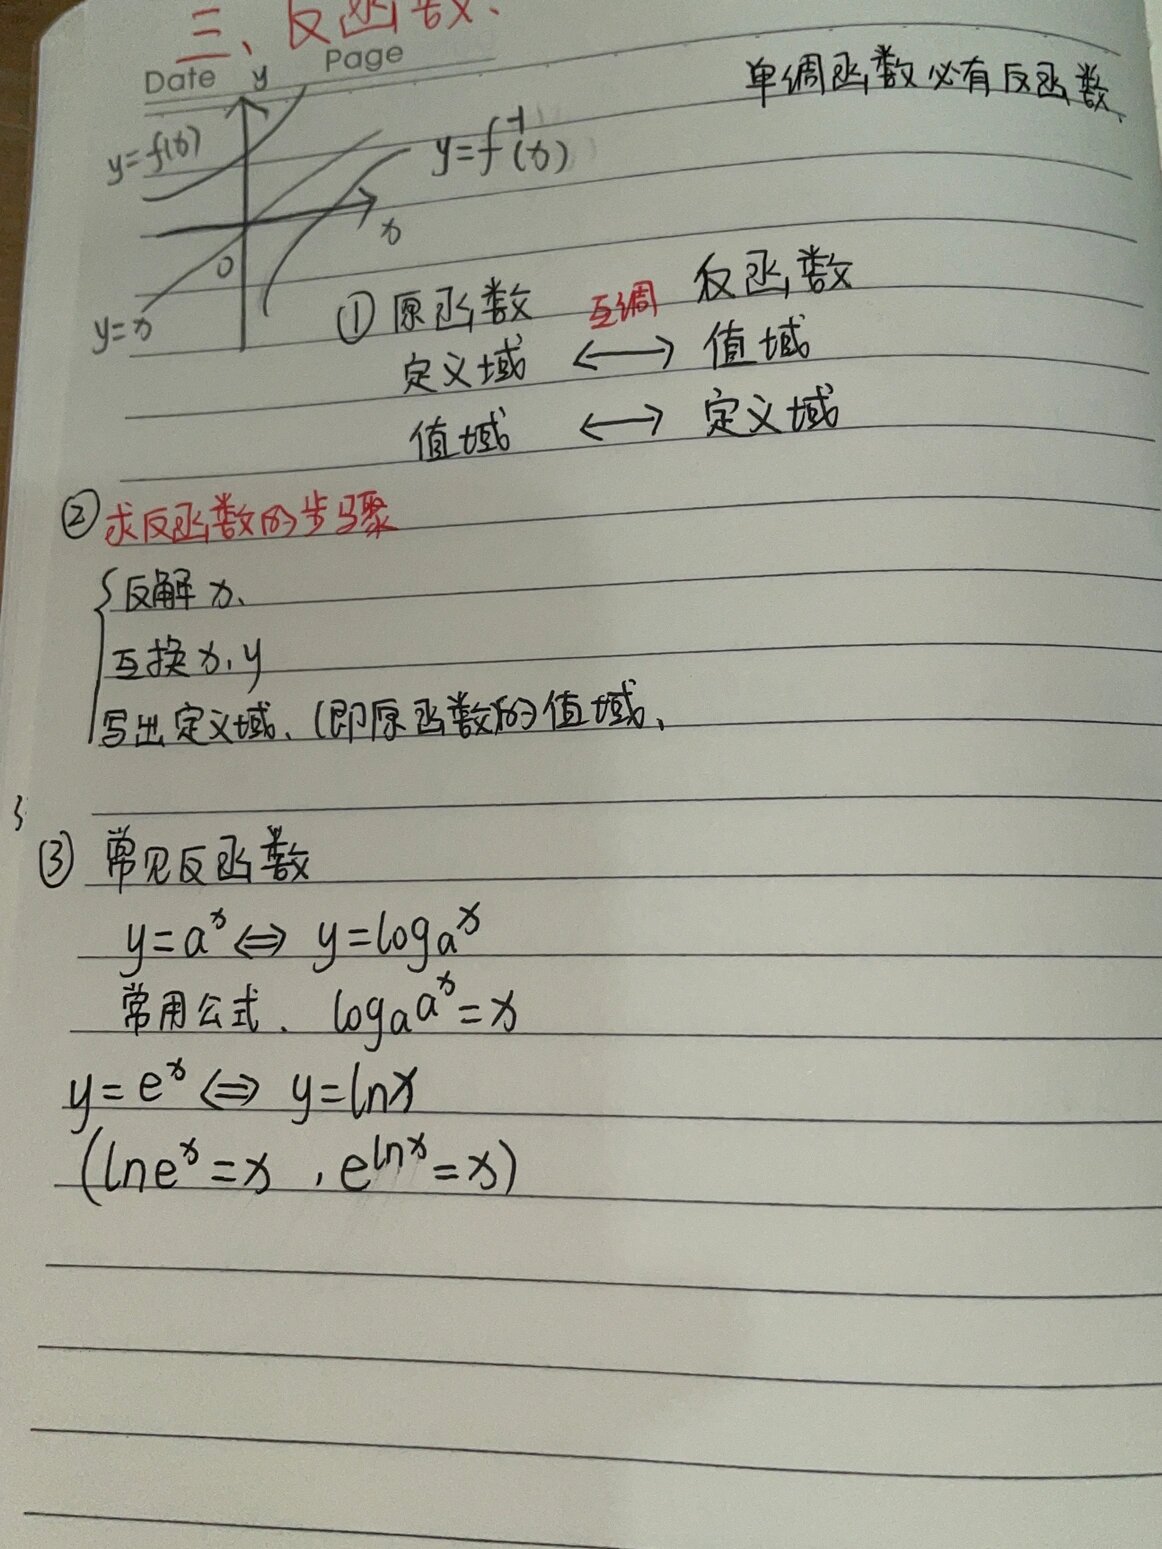 三、反函数、
Date Page
单调函数必有反函数、
y
y=f(x)
y=f⁻¹(x)
x
0
y=x
①原函数 互调 反函数
定义域 ⟷ 值域
值域 ⟷ 定义域
②求反函数的步骤
{反解x、
互换x、y
写出定义域、(即原函数的值域、
③ 常见反函数
y=aˣ⇔ y=logₐˣ
常用公式、 logₐaˣ=x
y=eˣ⇔ y=lnx
(lneˣ=x ,e^lnx=x)